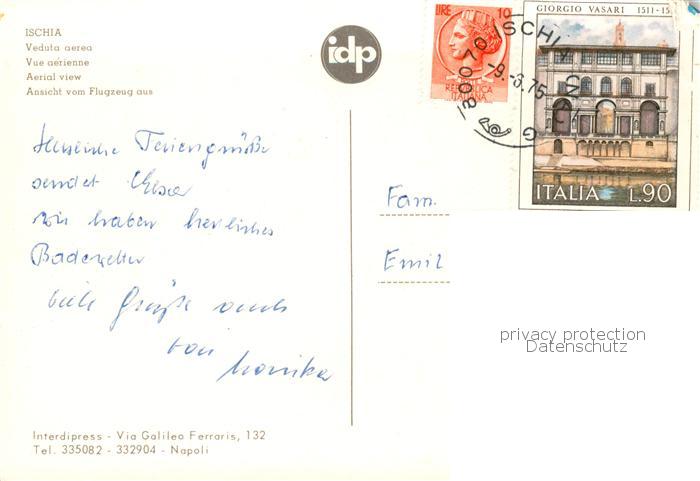 ISCHIA
Veduta aerea
Vue aérienne
Aerial view
Ansicht vom Flugzeug aus
idp
LIRE 10
REPUBBLICA
ITALIANA
80070 ISCHIA
-9.-6.75
GIORGIO VASARI 1511-15
ITALIA L.90
Herzliche Feriengrüße
sendet
wir haben herrliches
Badewetter
viele Grüße auch
von Monika
Fam.
Emil
privacy protection
Datenschutz
Interdipress - Via Galileo Ferraris, 132
Tel. 335082 - 332904 - Napoli